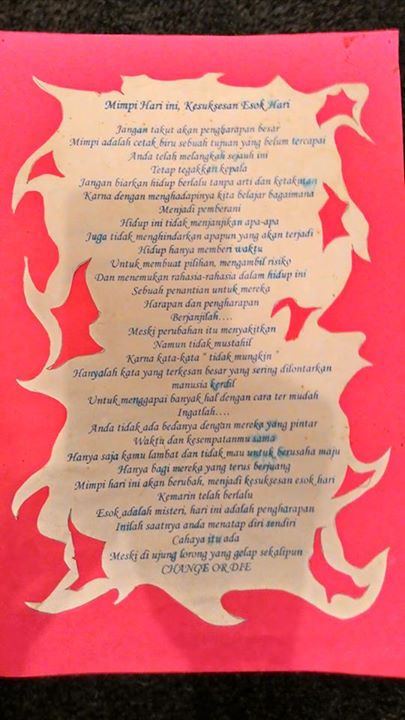 Mimpi Hari ini, Kesuksesan Esok Hari
Jangan takut akan pengharapan besar
Mimpi adalah cetak biru sebuah tujuan yang belum tercapai
Anda telah melangkah sejauh ini
Tetap tegakkan kepala
Jangan biarkan hidup berlalu tanpa arti dan ketakutan
Karna dengan menghadapinya kita belajar bagaimana
Menjadi pemberani
Hidup ini tidak menjanjikan apa-apa
Juga tidak menghindarkan apapun yang akan terjadi
Hidup hanya memberi waktu
Untuk membuat pilihan, mengambil risiko
Dan menemukan rahasia-rahasia dalam hidup ini
Sebuah penantian untuk mereka
Harapan dan pengharapan
Berjanjilah....
Meski perubahan itu menyakitkan
Namun tidak mustahil
Karna kata-kata " tidak mungkin "
Hanyalah kata yang terkesan besar yang sering dilontarkan
manusia kerdil
Untuk menggapai banyak hal dengan cara ter mudah
Ingatlah....
Anda tidak ada bedanya dengan mereka yang pintar
Waktu dan kesempatanmu sama
Hanya saja kamu lambat dan tidak mau untuk berusaha maju
Hanya bagi mereka yang terus berjuang
Mimpi hari ini akan berubah, menjadi kesuksesan esok hari
Kemarin telah berlalu
Esok adalah misteri, hari ini adalah pengharapan
Inilah saatnya anda menatap diri sendiri
Cahaya itu ada
Meski di ujung lorong yang gelap sekalipun
CHANGE OR DIE